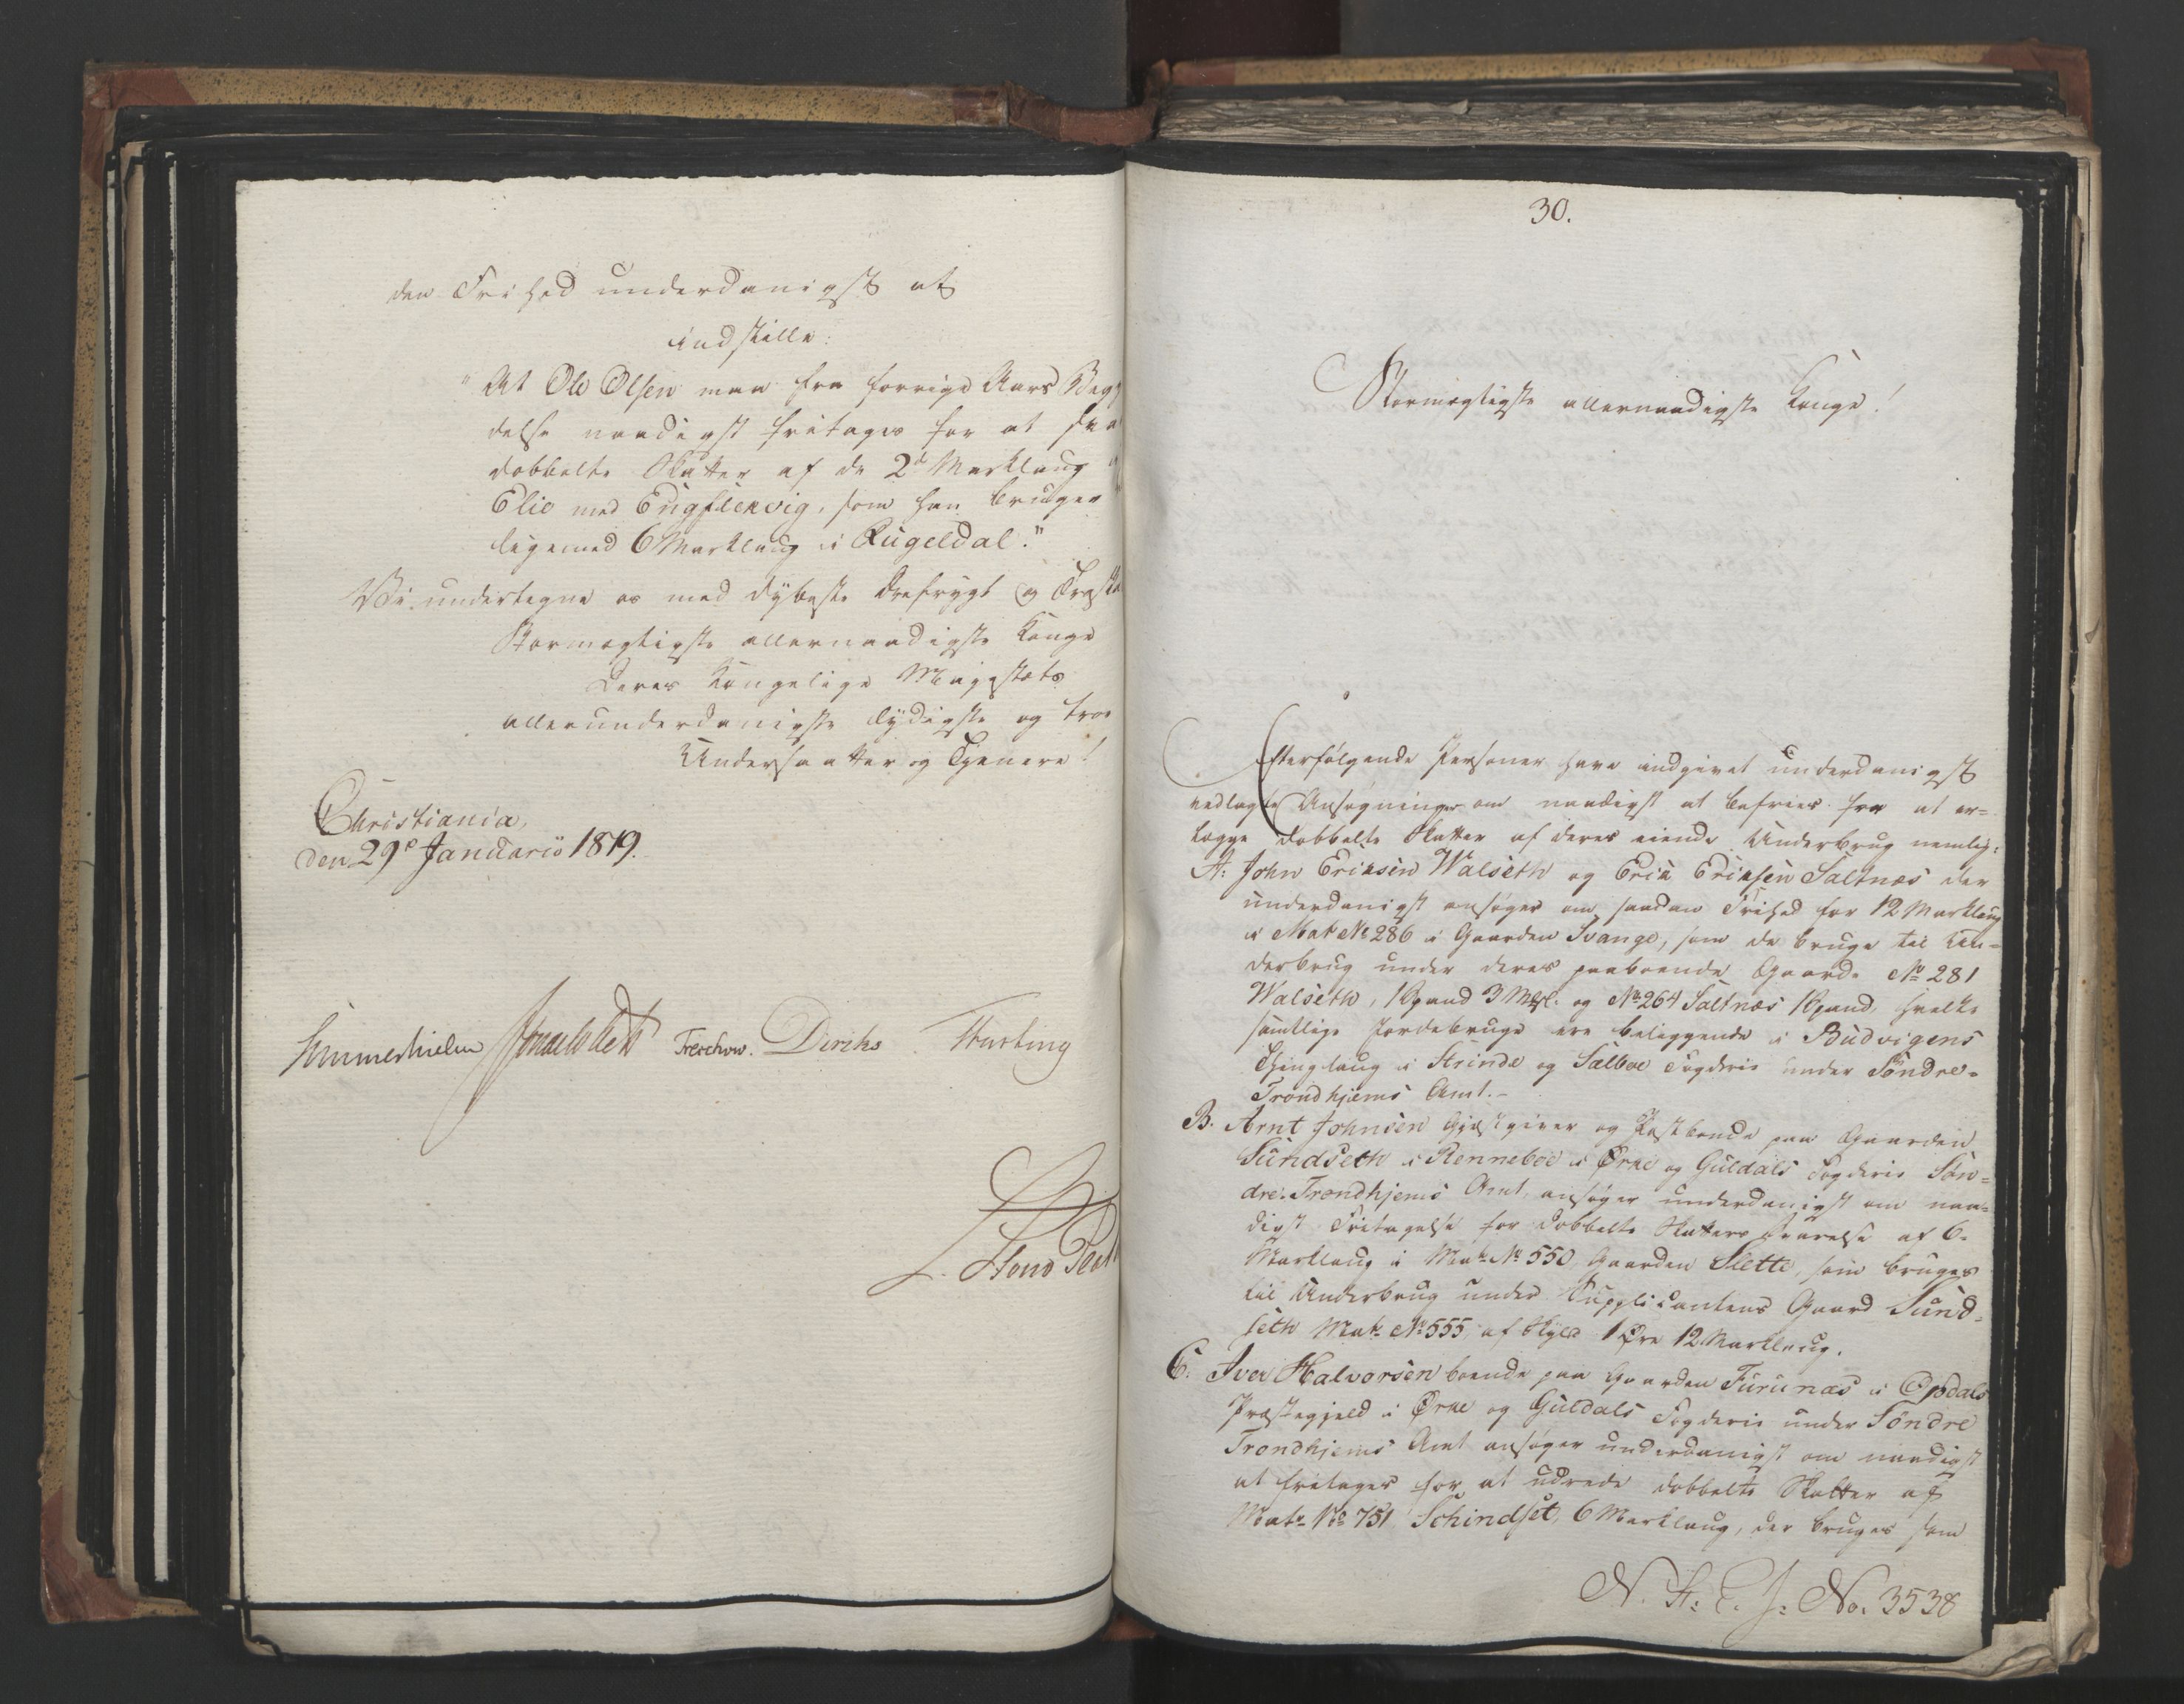 den Frihed underdanigst at
indstille:
"At Ole Olsen maa fra forrige Aars Begyn
delse naadigst fritages for at svare
dobbelte Skatter af de 2de Marklaug i
Elie med Engflekvig, som han bruger
ligemed 6 Marklaug i Rugeldal."
Vi undertegne os med dybeste Ærefrygt og Troskab
Stormægtigste allernaadigste Konge
Deres Kongelige Majestæts
allerunderdanigste lydigste og troe
Undersaatter og Tjenere!
Christiania,
den 29e Januario 1819.
Sommerhielm Treschow. Diriks
30.
Stormægtigste allernaadigste Konge!
Efterfølgende Personer have indgivet underdanigst
vedlagte Ansøgninger om naadigst at befries for at er=
lægge dobbelte Skatter af deres eiende Underbrug nemlig:
A: John Eriksen Walseth og Erik Eriksen Saltnæs der
underdanigst ansøger om saadan Frihed for 12 Marklaug
i Mat No 286 i Gaarden Svange, som de bruge til Un=
derbrug under deres paaboende Gaarde No 281
Walseth, 1 Spand 3 Mkl. og No 264 Saltnæs 1 Spand, hvilke
samtlige Jordebruge ere beliggende i Budvigens
Thinglaug i Strinde og Sælboe Fogderie under Søndre=
Trondhjems Amt.-
B. Arnt Johnsen Gjæstgiver og Postbonde paa Gaarden
Sundseth i Renneboe i Ørke og Guldals Fogderie Søn=
dre-Trondhjems Amt, ansøger underdanigst om naa=
digst Fritagelse for dobbelte Skatters Svarelse af 6.
Marklaug i Mat. No 550 Gaarden Slette, som bruges
til Underbrug under Supplicantens Gaard Sund=
seth Mat. No 555 af Skyld 1 Øre 12 Marklaug.
C: Iver Halvorsen boende paa Gaarden Furunæs i Opdals
Præstegjeld i Ørke og Guldals Fogderie under Søndre
Trondhjems Amt ansøger underdanigst om naadigst
at fritages for at udrede dobbelte Skatter af
Matr No 751 Schindset, 6 Marklaug, der bruges som
No. 3538